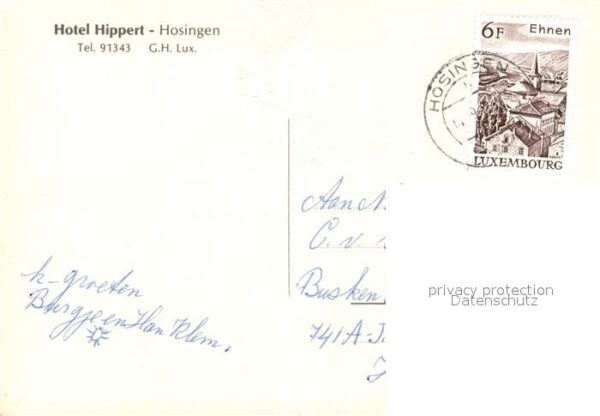 Hotel Hippert - Hosingen
Tel. 91343 G.H. Lux.
6F Ehnen
LUXEMBOURG
HOSINGEN
Aan
C. v.
Busken
741A-
privacy protection
Datenschutz
h-groeten
Bargje en Han Klem.